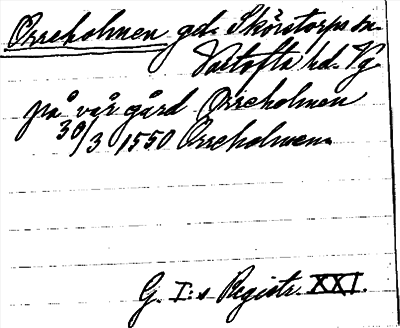 Orreholmen gd. Skörstorps sn.
Vartofta hd. Vg
på vår gård Orreholmen
30/3 1550 Orreholmen.
G. I:s Registr. XXI.